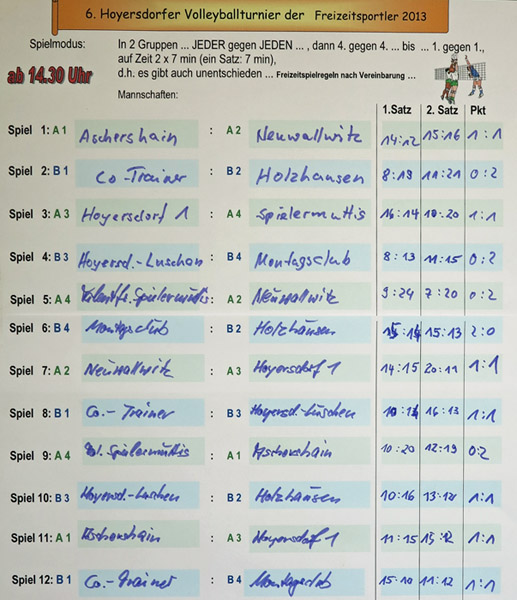 6. Hoyersdorfer Volleyballturnier der Freizeitsportler 2013
Spielmodus: In 2 Gruppen ... JEDER gegen JEDEN ... , dann 4. gegen 4. ... bis ... 1. gegen 1.,
auf Zeit 2 x 7 min (ein Satz: 7 min),
ab 14.30 Uhr
d.h. es gibt auch unentschieden ... Freizeitspielregeln nach Vereinbarung ...
Mannschaften:
1.Satz 2. Satz Pkt
Spiel 1: A 1 Aschershain : A 2 Neuwallwitz 14:12 15:16 1:1
Spiel 2: B 1 Co-Trainer : B 2 Holzhausen 8:19 11:21 0:2
Spiel 3: A 3 Hoyersdorf 1 : A 4 Spielermuttis 16:14 :20 1:1
Spiel 4: B 3 Hoyersd.-Luschen : B 4 Montagsclub 8:13 11:15 0:2
Spiel 5: A 4 Spielermuttis : A 2 Neuwallwitz 9:24 7:20 0:2
Spiel 6: B 4 Montagsclub : B 2 Holzhausen 15:13 2:0
Spiel 7: A 2 Neuwallwitz : A 3 Hoyersdorf 1 14:15 20:11 1:1
Spiel 8: B 1 Co.-Trainer : B 3 Hoyersd-Luschen 16:13 1:1
Spiel 9: A 4 Spielermuttis : A 1 Aschershain 10:20 12:19 0:2
Spiel 10: B 3 Hoyersd-Luschen : B 2 Holzhausen 10:16 13:12 1:1
Spiel 11: A 1 Aschershain : A 3 Hoyersdorf 1 11:15 13:12 1:1
Spiel 12: B 1 Co.-Trainer : B 4 Montagsclub 15:10 11:12 1:1